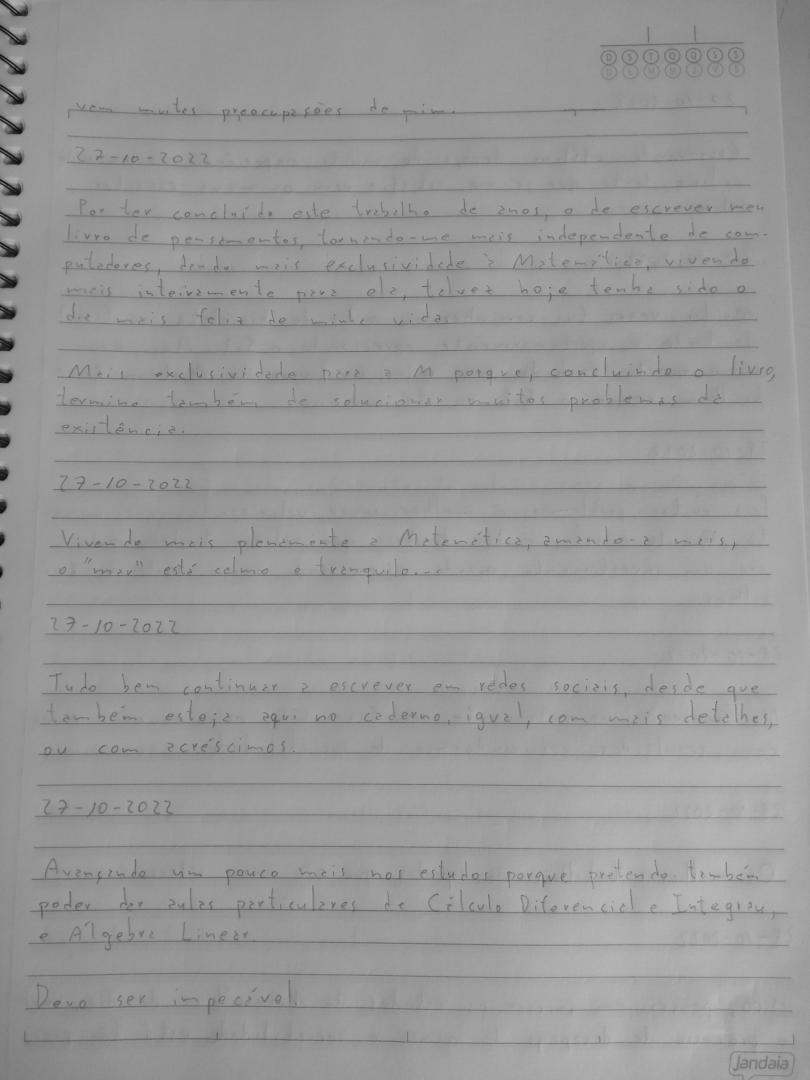 D S T Q Q S S
D L M M J V S
vem muitas preocupações de mim.
27-10-2022
Por ter concluído este trabalho de anos, o de escrever meu
livro de pensamentos, tornando-me mais independente de com-
putadores, dando mais exclusividade à Matemática, vivendo
mais inteiramente para ela, talvez hoje tenha sido o
dia mais feliz de minha vida.
Mais exclusividade para a M porque, concluindo o livro,
termino também de solucionar muitos problemas da
existência.
27-10-2022
Vivendo mais plenamente a Matemática, amando-a mais,
o "mar" está calmo e tranquilo...
27-10-2022
Tudo bem continuar a escrever em redes sociais, desde que
também esteja aqui no caderno, igual, com mais detalhes,
ou com acréscimos.
27-10-2022
Avançando um pouco mais nos estudos porque pretendo também
poder dar aulas particulares de Cálculo Diferencial e Integrau,
e Álgebra Linear.
Devo ser impecável.
jandaia